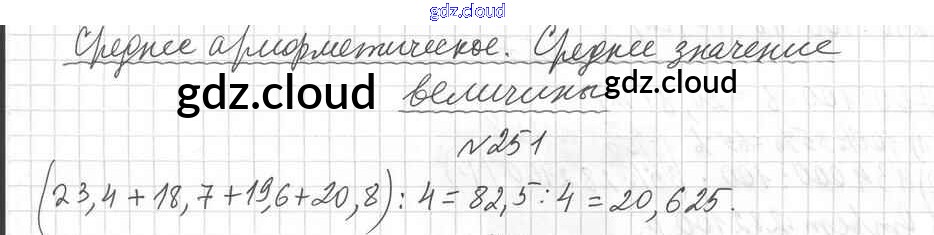 gdz.cloud
Среднее арифметическое. Среднее значение
gdz.cloud величины gdz.cloud
№251
(23,4+18,7+19,6+20,8):4=82,5:4=20,625.